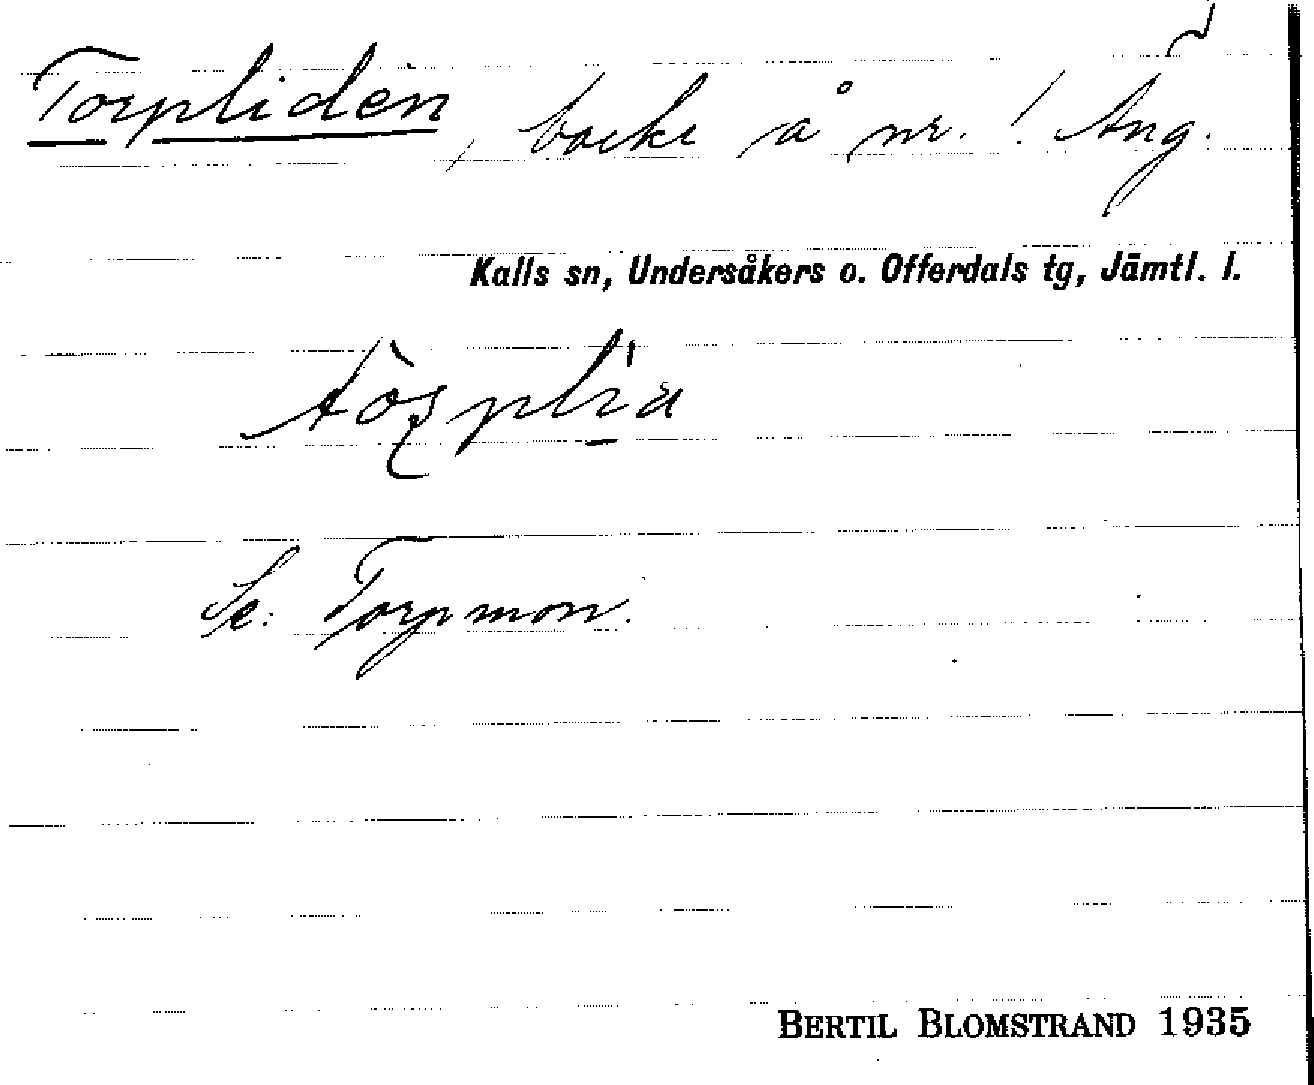 Torpliden, backe å nr. 1 Äng.
Kalls sn, Undersåkers o. Offerdals tg, Jämtl. l.
Se: Torpmon.
BERTIL BLOMSTRAND 1935